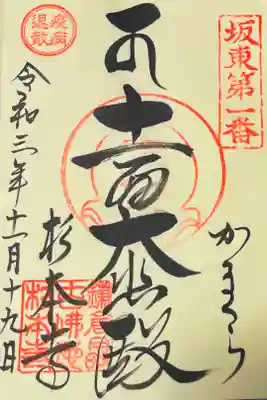 坂東第一番
かまくら
十一面大悲殿
杉本寺
令和三年十一月十九日
疫病
退散